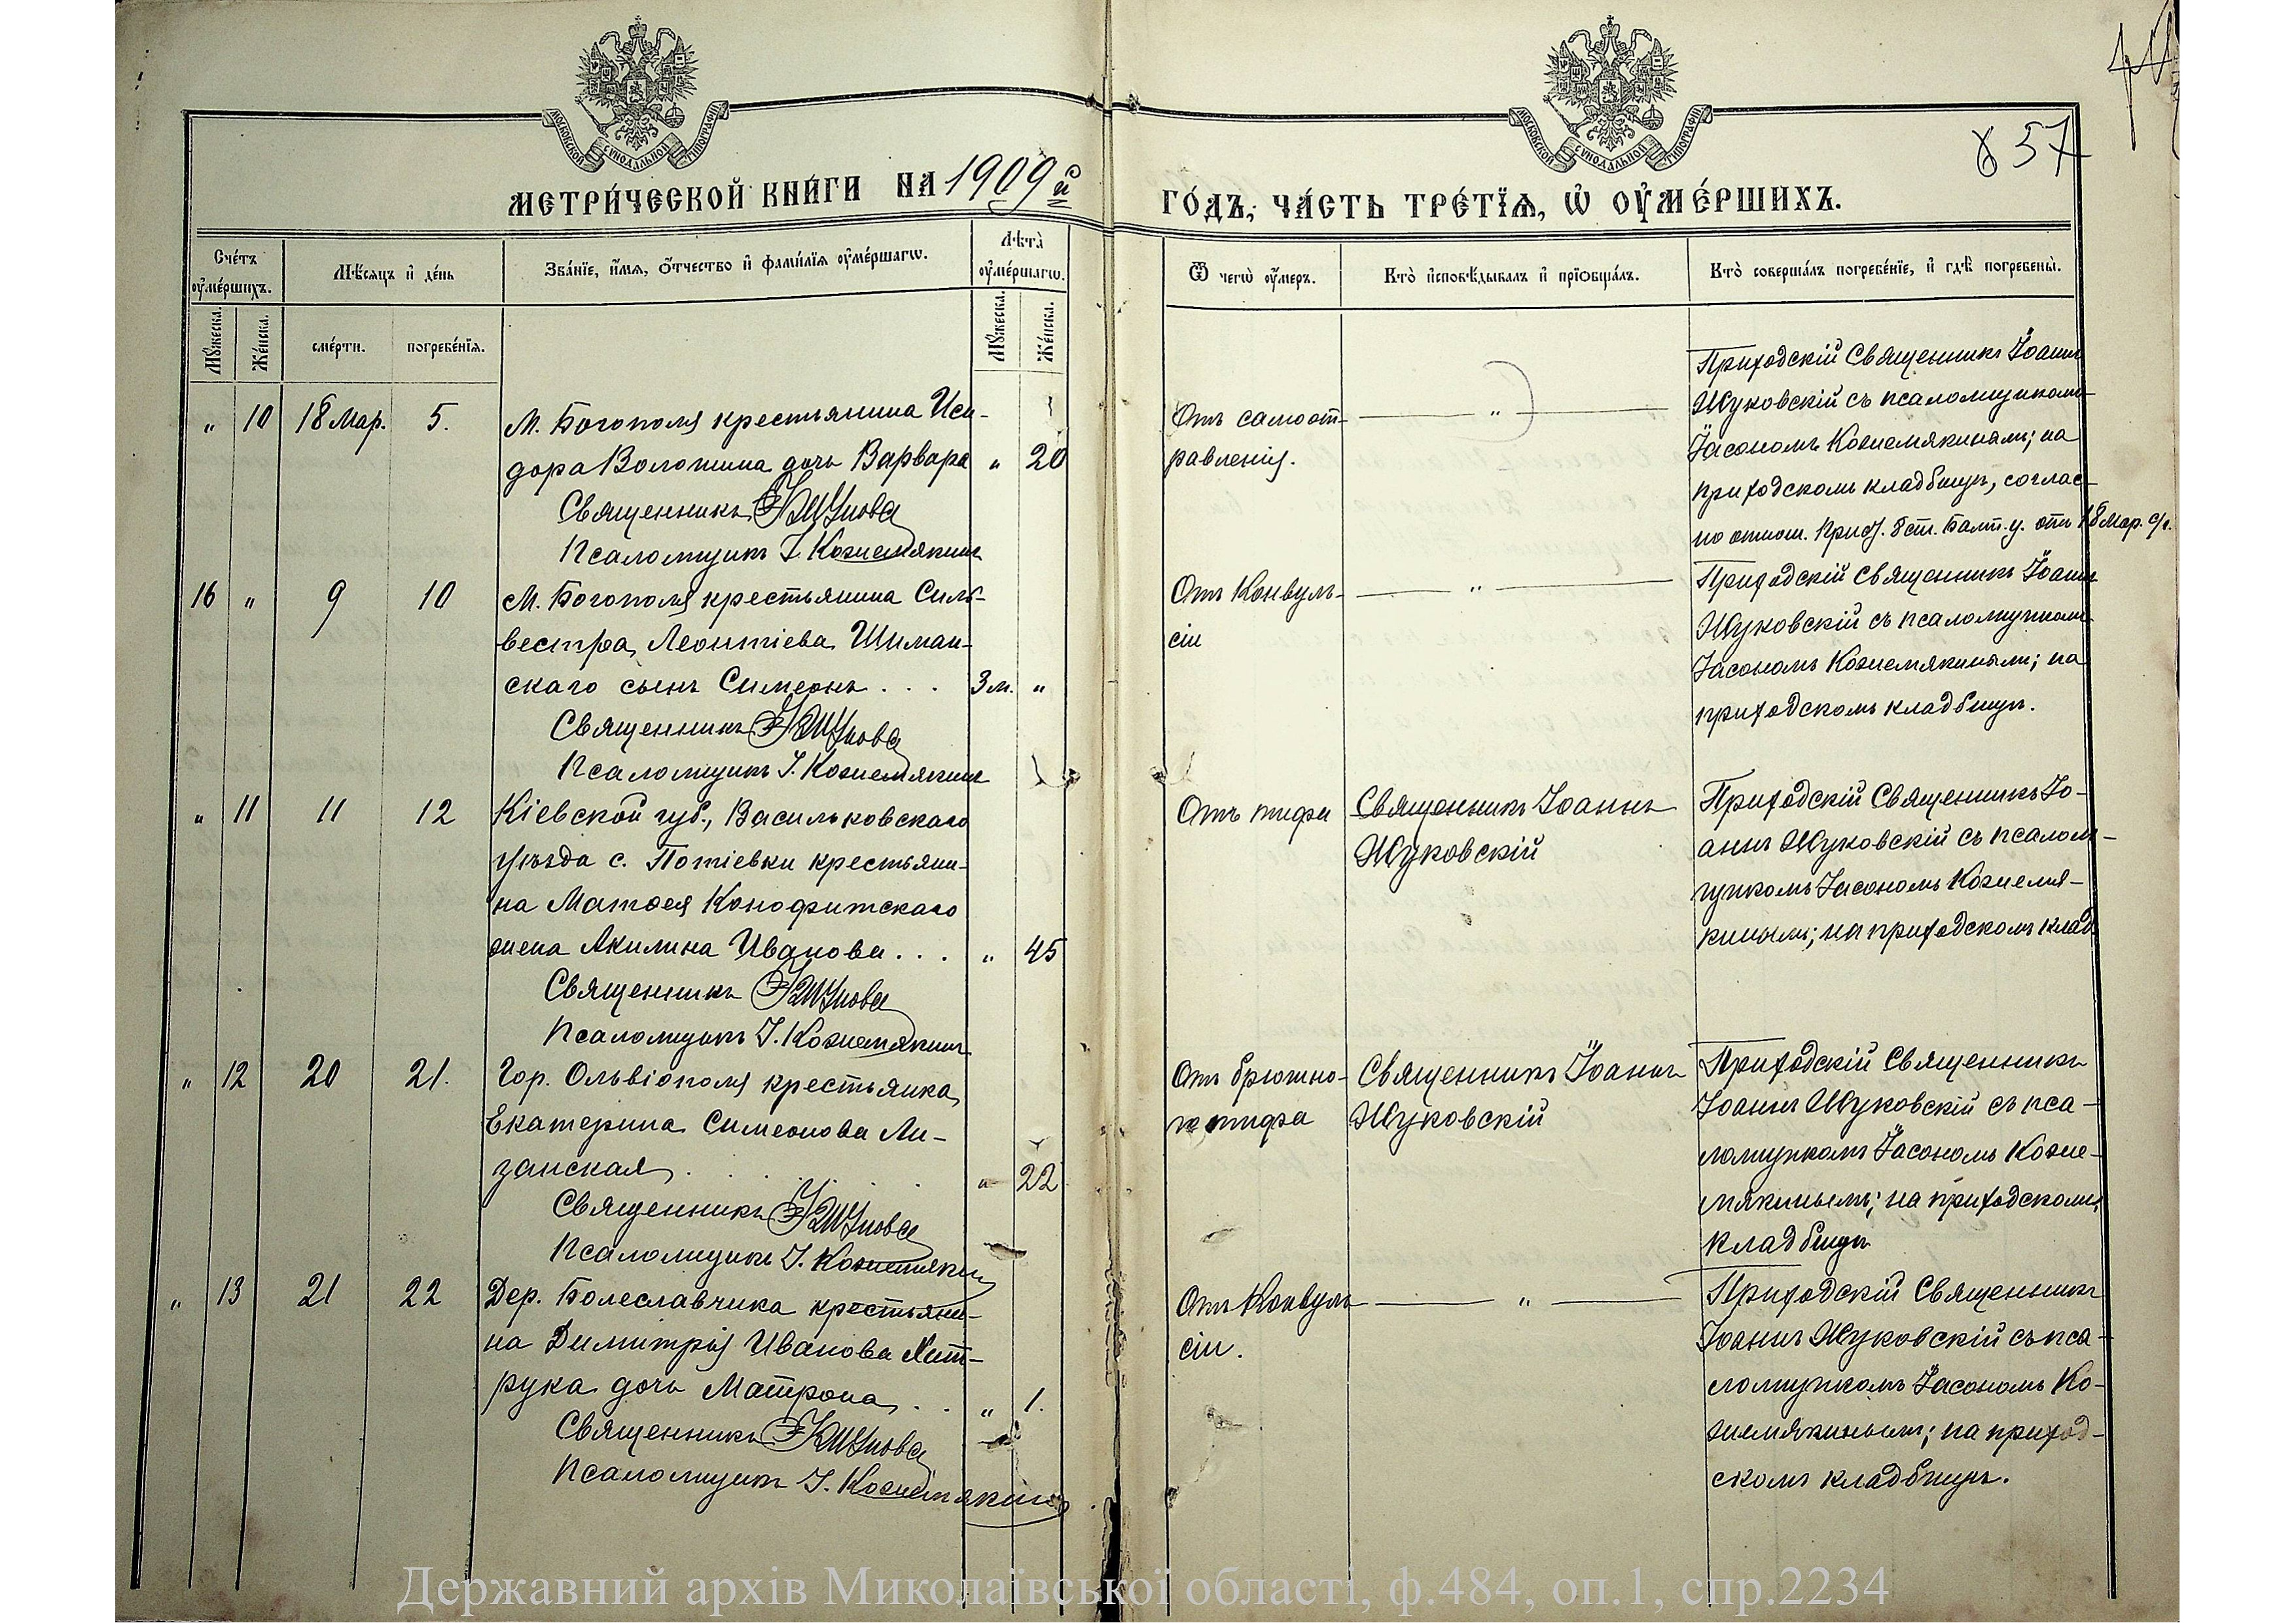 МОСКОВСКОЙ СУНОДАЛЬНОЙ ТИПОГРАФІИ
МОСКОВСКОЙ СУНОДАЛЬНОЙ ТИПОГРАФІИ
857
МЕТРИ́ЧЕСКОЙ КНИ́ГИ НА 1909й
ГО́ДЪ, ЧА́СТЬ ТРЕ́ТЇѦ, Ѡ҆ ОУ҆МЕ́РШИХЪ.
Сче́тъ оу҆ме́ршихъ.
Мѣ́сѧцъ и҆ де́нь
Зва́нїе, и҆́мѧ, ѻ҆́тчество и҆ фами́лїѧ оу҆ме́ршагѡ.
Лѣ̀та оу҆ме́ршагѡ.
Ѿ чегѡ̀ оу҆́меръ.
Кто̀ и҆сповѣ́дывалъ и҆ прїѻбща́лъ.
Кто̀ соверша́лъ погребе́нїе, и҆ гдѣ̀ погребены̀.
Мꙋ́жеска.
Же́нска.
сме́рти.
погребе́нїѧ.
Мꙋ́жеска.
Же́нска.
" 10 18 Мар. 5.
М. Богополя крестьянина Иси-
дора Волошина дочь Варвара " 20
Священникъ
Псаломщикъ І. Кожемякинъ
Отъ самоот-
равленія.
"
Приходскій Священникъ Іоаннъ
Жуковскій съ псаломщикомъ
Іасономъ Кожемякинымъ; на
приходскомъ кладбищѣ, соглас-
но отнош. Балт. у. отъ 18 Мар. с/г.
16 " 9 10
М. Богополя крестьянина Силь-
вестра Леонтіева Шиман-
скаго сынъ Симеонъ . . . 3 м. "
Священникъ
Псаломщикъ І. Кожемякинъ
Отъ Конвуль-
сіи
"
Приходскій Священникъ Іоаннъ
Жуковскій съ псаломщикомъ
Іасономъ Кожемякинымъ; на
приходскомъ кладбищѣ.
" 11 11 12
Кіевской губ., Васильковскаго
уѣзда с. Потіевки крестьяни-
на Матѳея Конофитскаго
жена Акилина Иванова . . . " 45
Священникъ
Псаломщикъ І. Кожемякинъ
Отъ тифа
Священникъ Іоаннъ
Жуковскій
Приходскій Священникъ Іо-
аннъ Жуковскій съ псалом-
щикомъ Іасономъ Кожемя-
кинымъ; на приходскомъ клад.
" 12 20 21.
Гор. Ольвіополя крестьянка
Екатерина Симеонова Ли-
занская . . . . " 22
Священникъ
Псаломщикъ І. Кожемякинъ
Отъ брюшно-
го тифа
Священникъ Іоаннъ
Жуковскій
Приходскій Священникъ
Іоаннъ Жуковскій съ пса-
ломщикомъ Іасономъ Коже-
мякинымъ; на приходскомъ
кладбищѣ
" 13 21 22
Дер. Болеславчика крестьяни-
на Димитрія Иванова Хит-
рука дочь Матрона . . " 1.
Священникъ
Псаломщикъ І. Кожемякинъ
Отъ Конвуль-
сіи.
"
Приходскій Священникъ
Іоаннъ Жуковскій съ пса-
ломщикомъ Іасономъ Ко-
жемякинымъ; на приход-
скомъ кладбищѣ.
Державний архів Миколаївської області, ф.484, оп.1, спр.2234